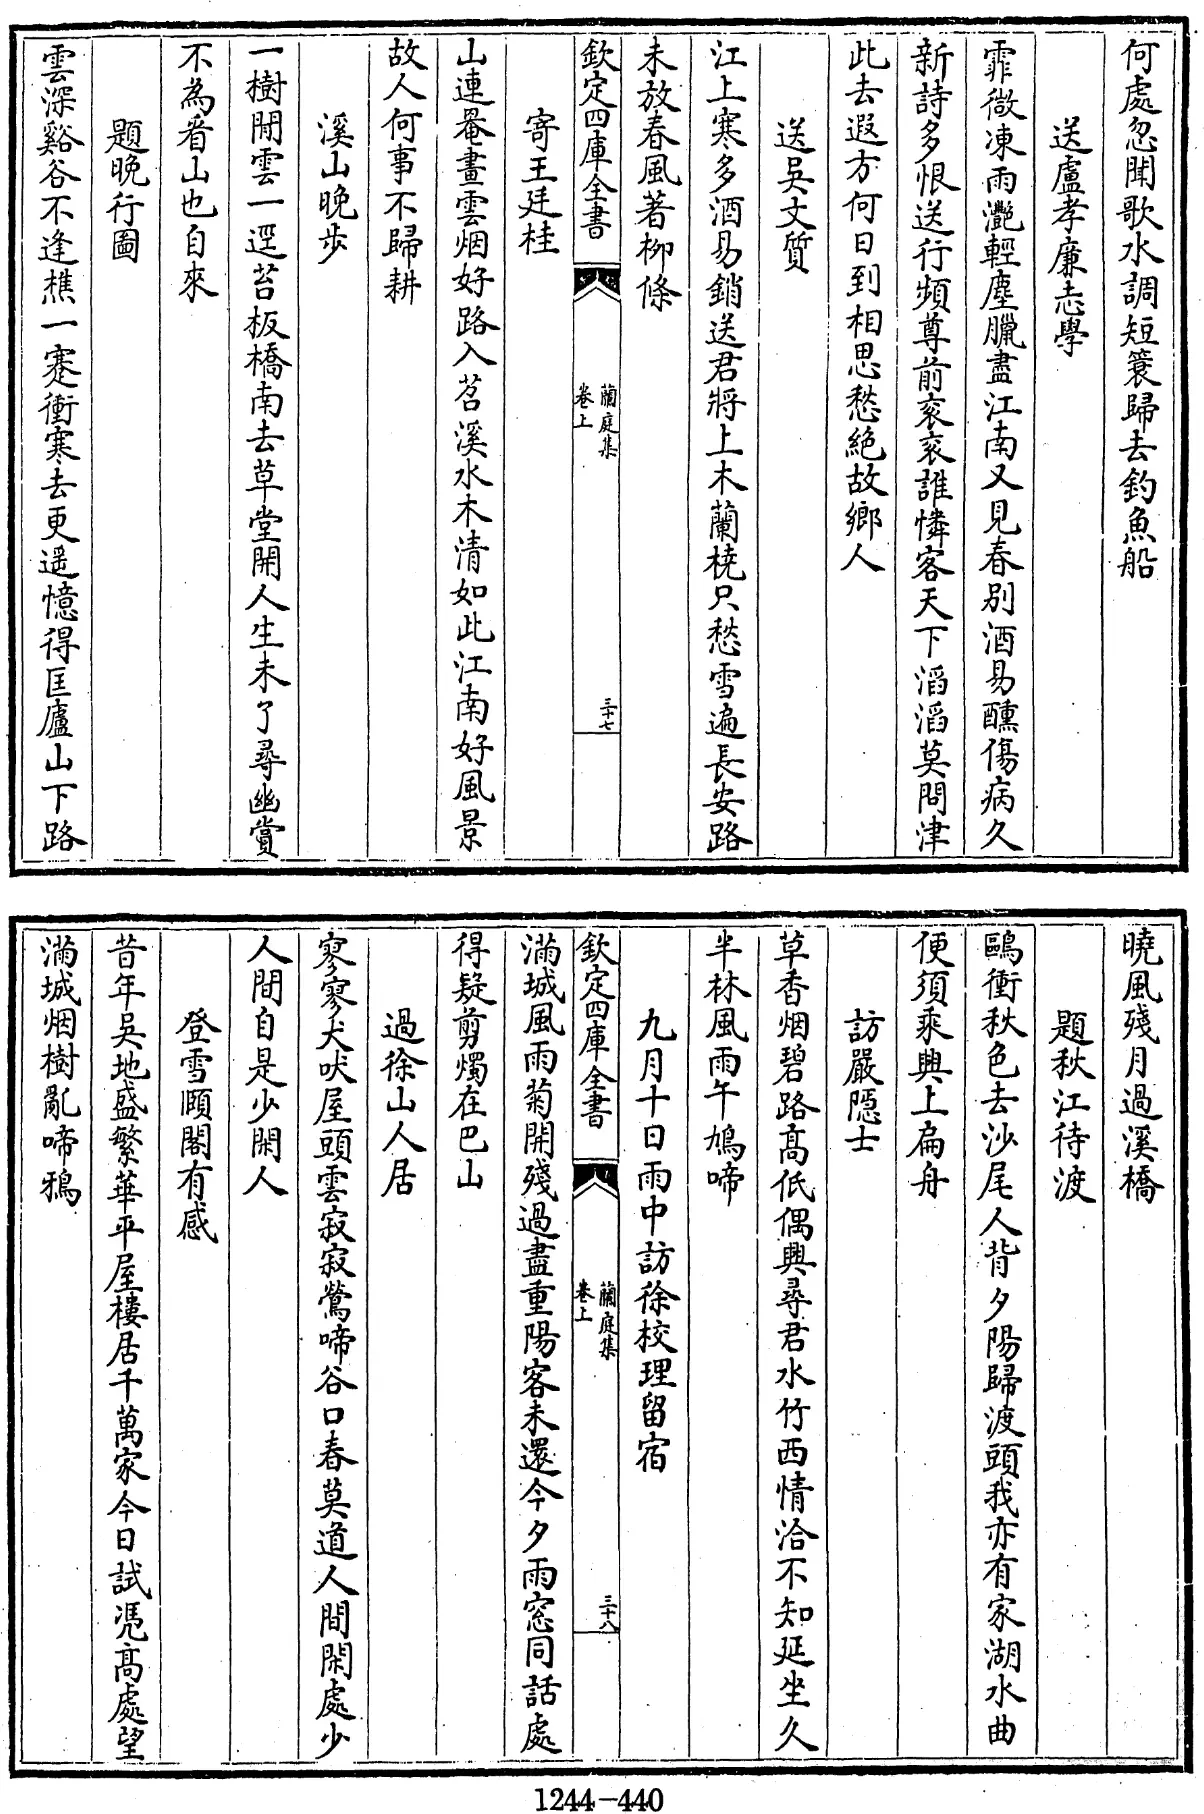 何處忽聞歌水調短簑歸去釣魚船
送盧孝廉志學
霏微凍雨灔輕塵臘盡江南又見春别酒易醺傷病久
新詩多恨送行頻尊前衮衮誰憐客天下滔滔莫問津
此去遐方何日到相思愁絶故鄉人
送吳文質
江上寒多酒易銷送君將上木蘭橈只愁雪遍長安路
未放春風著柳條
欽定四庫全書
蘭庭集
卷上
三十七
寄王廷桂
山連罨畫雲烟好路入苕溪水木清如此江南好風景
故人何事不歸耕
溪山晚步
一樹閒雲一逕苔板橋南去草堂開人生未了尋幽賞
不為看山也自來
題晚行圖
雲深谿谷不逢樵一蹇衝寒去更遥憶得匡廬山下路
曉風殘月過溪橋
題秋江待渡
鷗衝秋色去沙尾人背夕陽歸渡頭我亦有家湖水曲
便須乘興上扁舟
訪嚴隱士
草香烟碧路髙低偶興尋君水竹西情洽不知延坐久
半林風雨午鳩啼
九月十日雨中訪徐校理留宿
滿城風雨菊開殘過盡重陽客未還今夕雨窓同話處
得疑剪燭在巴山
欽定四庫全書
蘭庭集
卷上
三十八
過徐山人居
寥寥犬吠屋頭雲寂寂鶯啼谷口春莫道人間閑處少
人間自是少閑人
登雪頤閣有感
昔年吳地盛繁華平屋樓居千萬家今日試凭髙處望
滿城烟樹亂啼鴉
1244-440